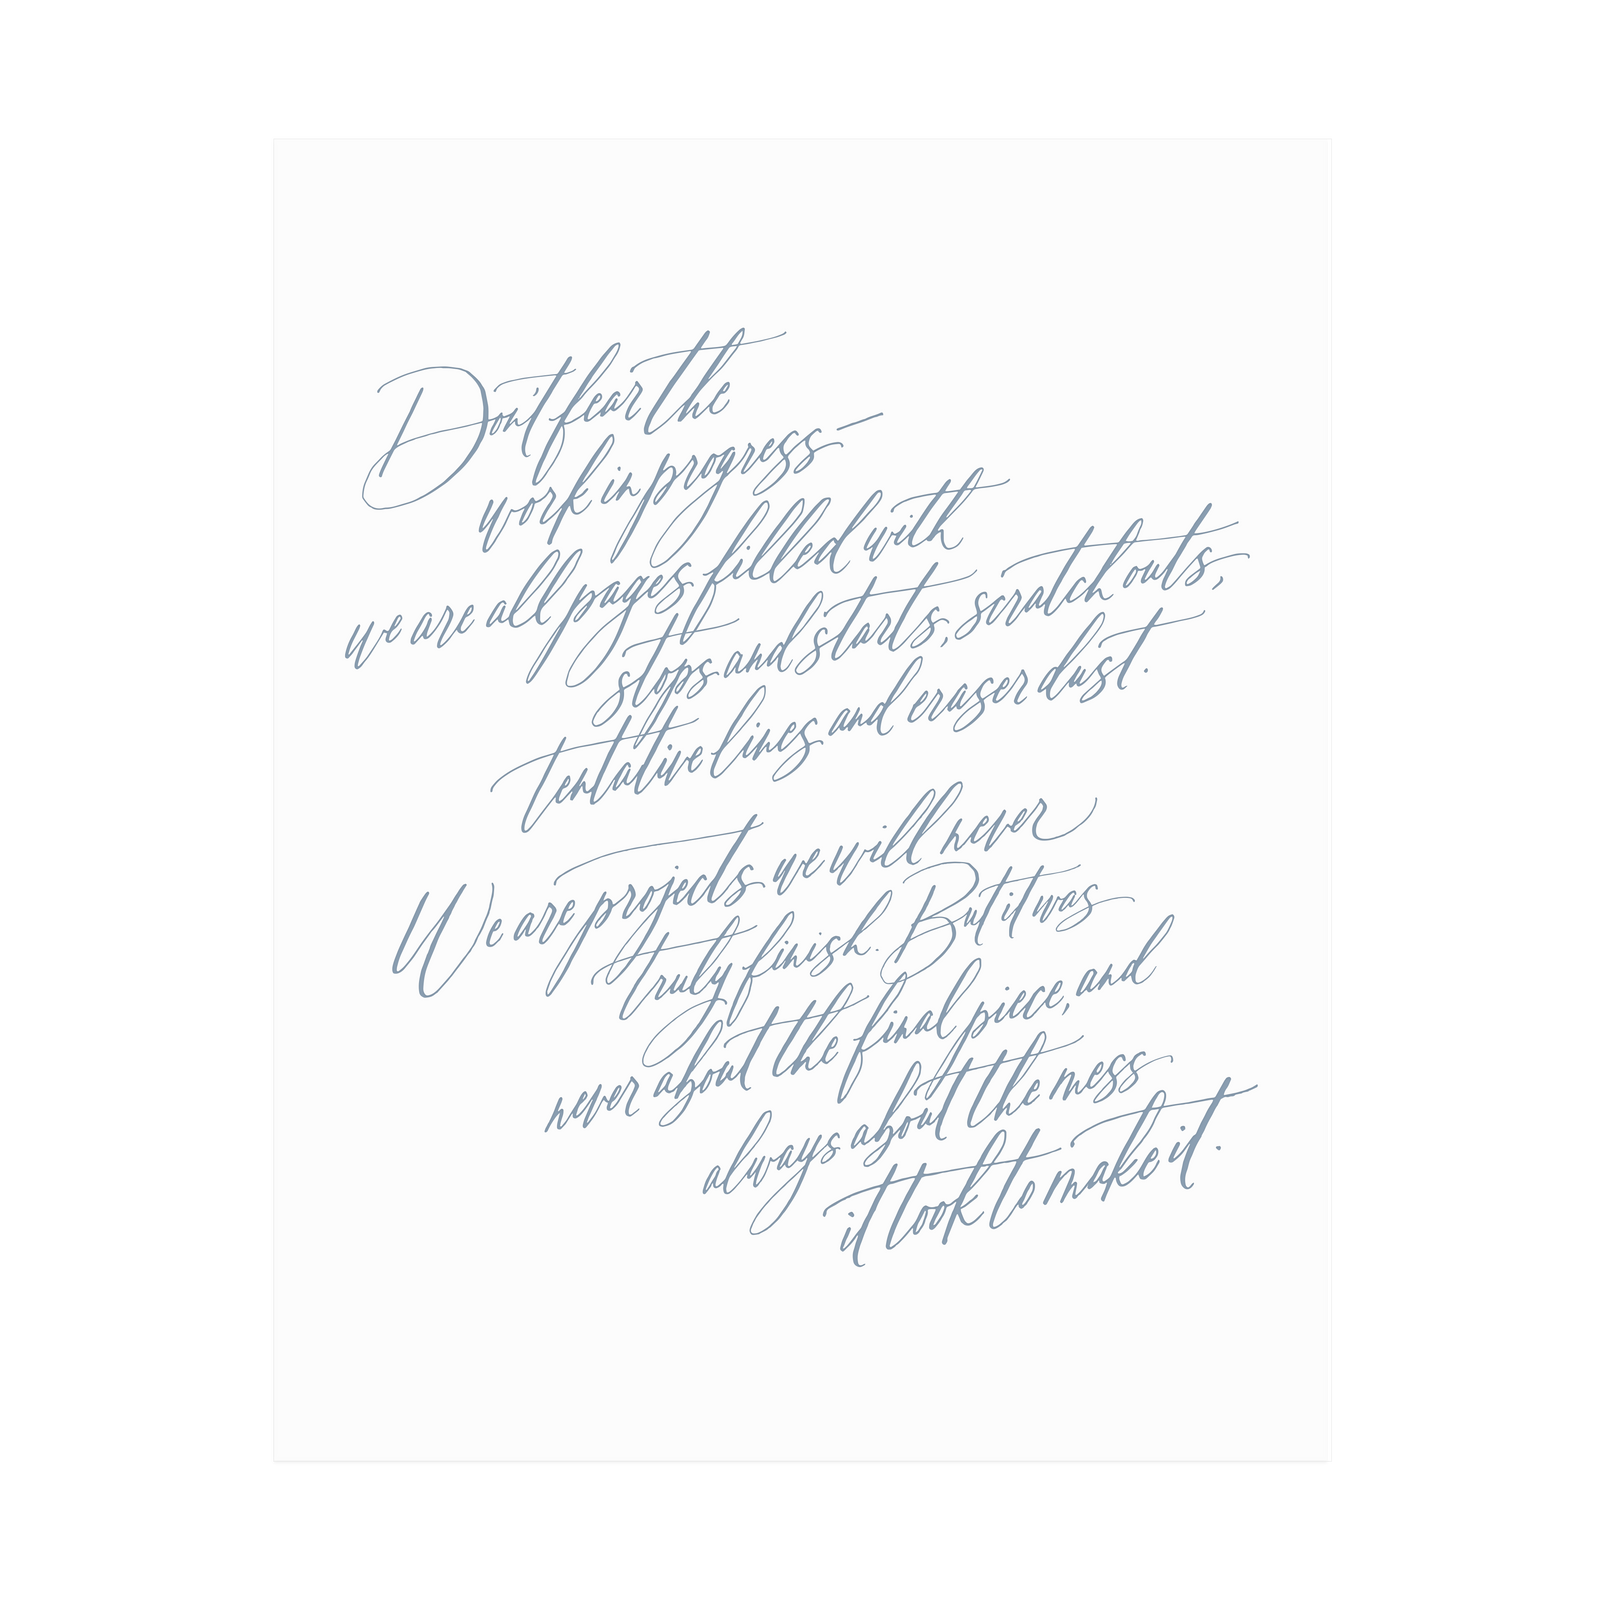 Don't fear the
work in progress—
we are all pages filled with
stops and starts, scratch outs,
tentative lines and eraser dust.
We are projects we will never
truly finish. But it was
never about the final piece, and
always about the mess
it took to make it.